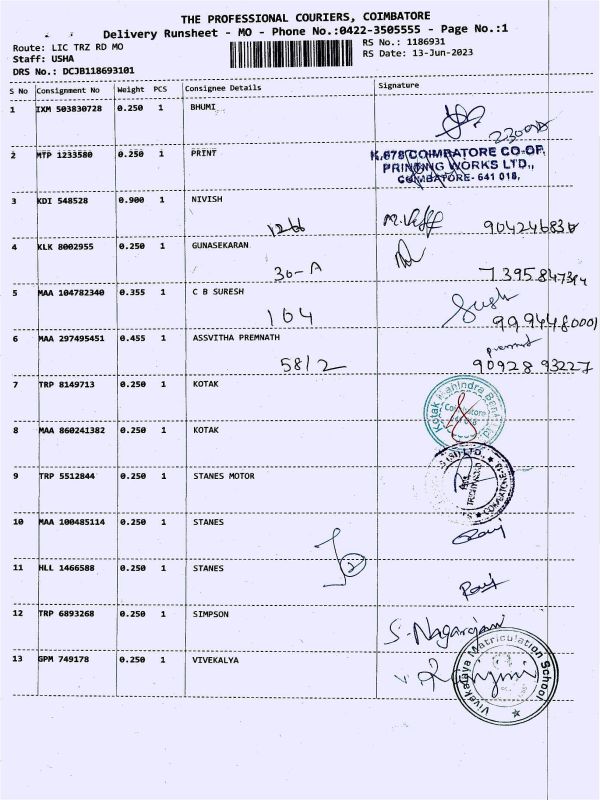 THE PROFESSIONAL COURIERS, COIMBATORE
Delivery Runsheet - MO - Phone No.:0422-3505555 - Page No.:1
Route: LIC TRZ RD MO
RS No.: 1186931
Staff: USHA
RS Date: 13-Jun-2023
DRS No.: DCJB118693101
S No Consignment No Weight PCS Consignee Details Signature
1 IXM 503830728 0.250 1 BHUMI
2 MTP 1233580 0.250 1 PRINT
K.678 COIMBATORE CO-OP.
PRINTING WORKS LTD.,
COIMBATORE- 641 018.
3 KDI 548528 0.900 1 NIVISH
1266
4 KLK 8002955 0.250 1 GUNASEKARAN
30-A
5 MAA 104782340 0.355 1 C B SURESH
104
9994480001
6 MAA 297495451 0.455 1 ASSVITHA PREMNATH
58/2 90928 93227
7 TRP 8149713 0.250 1 KOTAK
Kotak Mahindra Bank Ltd
Coimbatore
8 MAA 860241382 0.250 1 KOTAK
9 TRP 5512844 0.250 1 STANES MOTOR
10 MAA 100485114 0.250 1 STANES
11 HLL 1466588 0.250 1 STANES
12 TRP 6893268 0.250 1 SIMPSON
S. Nagarajan
13 GPM 749178 0.250 1 VIVEKALYA
Vivekalaya Matriculation School